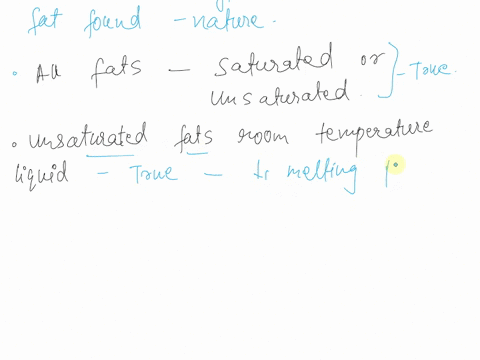 fat found - nature.
• All fats - saturated or
unsaturated. - True.
• unsaturated fats room temperature
liquid - True - melting